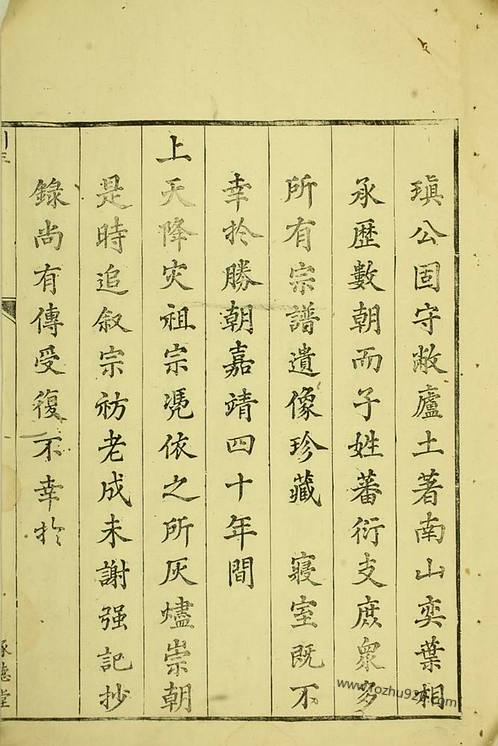 瑱公固守敝廬土著南山奕葉相
承歷數朝而子姓蕃衍支庶衆多
所有宗譜遺像珍藏　寢室既不
幸於勝朝嘉靖四十年間
上天降灾祖宗凴依之所灰燼崇朝
是時追叙宗祊老成未謝强記抄
錄尚有傳受復不幸於
德堂